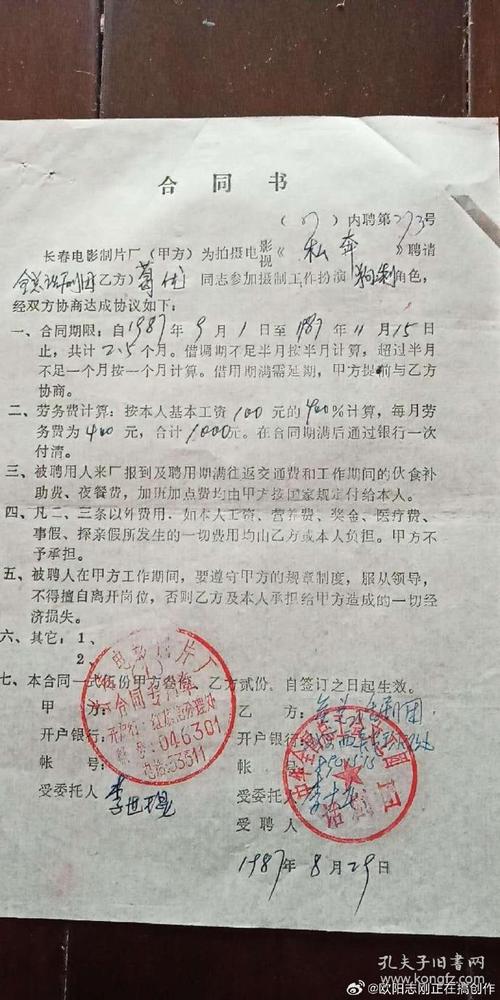 合同书
(87)内聘第273号
长春电影制片厂(甲方)为拍摄电影视《私奔》聘请
全总话剧团(乙方)葛优同志参加摄制工作扮演狗剩角色,
经双方协商达成协议如下:
一、合同期限:自1987年9月1日至1987年11月15日
止,共计2.5个月。借调期不足半月按半月计算,超过半月
不足一个月按一个月计算。借用期满需延期,甲方提前与乙方
协商。
二、劳务费计算:按本人基本工资100元的400%计算,每月劳
务费为400元,合计1000元。在合同期满后通过银行一次
付清。
三、被聘用人来厂报到及聘用期满往返交通费和工作期间的伙食补
助费、夜餐费,加班加点费均由甲方按国家规定付给本人。
四、凡二、三条以外费用.如本人工资、营养费、奖金、医疗费、
事假、探亲假所发生的一切费用均由乙方或本人负担。甲方不
予承担。
五、被聘人在甲方工作期间,要遵守甲方的规章制度,服从领导,
不得擅自离开岗位,否则乙方及本人承担给甲方造成的一切经
济损失。
六、其它:1、
2、
七、本合同一式伍份甲方叁份,乙方贰份,自签订之日起生效。
甲方:
乙方:全总话剧团
开户银行:
开户银行:
帐号:
帐号:
受委托人 李世
受委托人
受聘人
电影制片厂
合同专用章
开户行:
帐号:046301
电话:53311
中华全国总工会
话剧团
1987年8月29日
孔夫子旧书网
@欧阳志刚正在搞创作